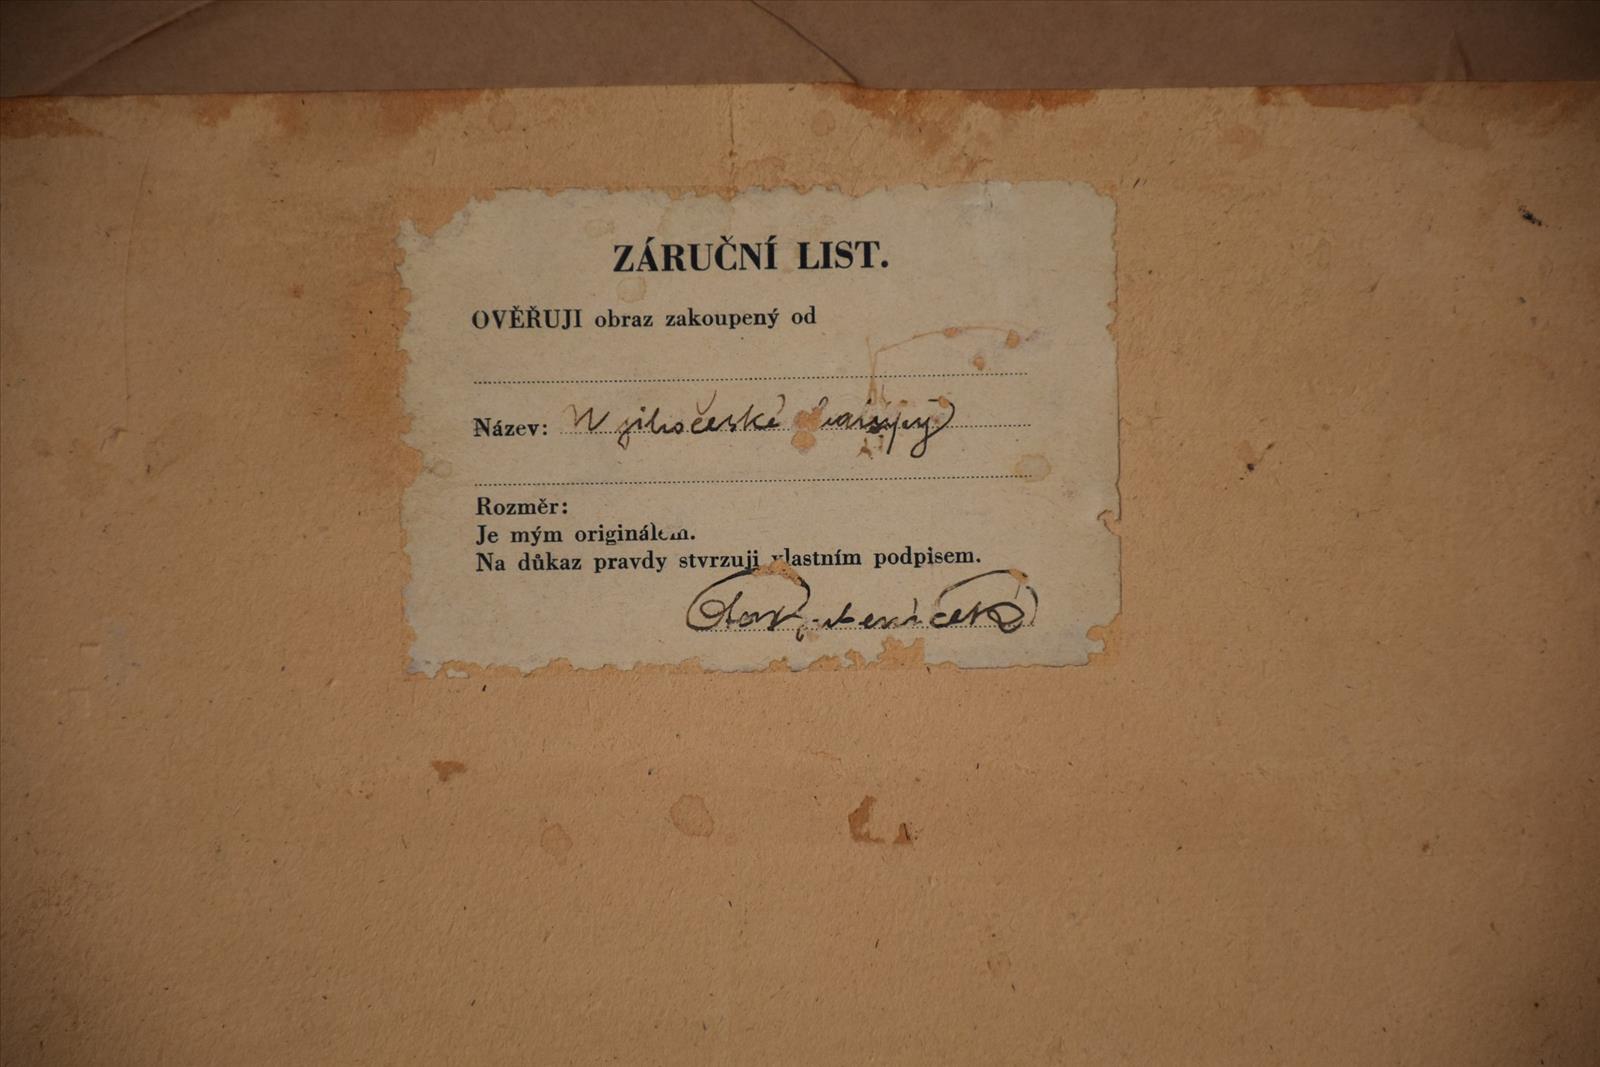 ZÁRUČNÍ LIST.
OVĚŘUJI obraz zakoupený od
Název: V jihočeské
Rozměr:
Je mým originálem.
Na důkaz pravdy stvrzuji vlastním podpisem.